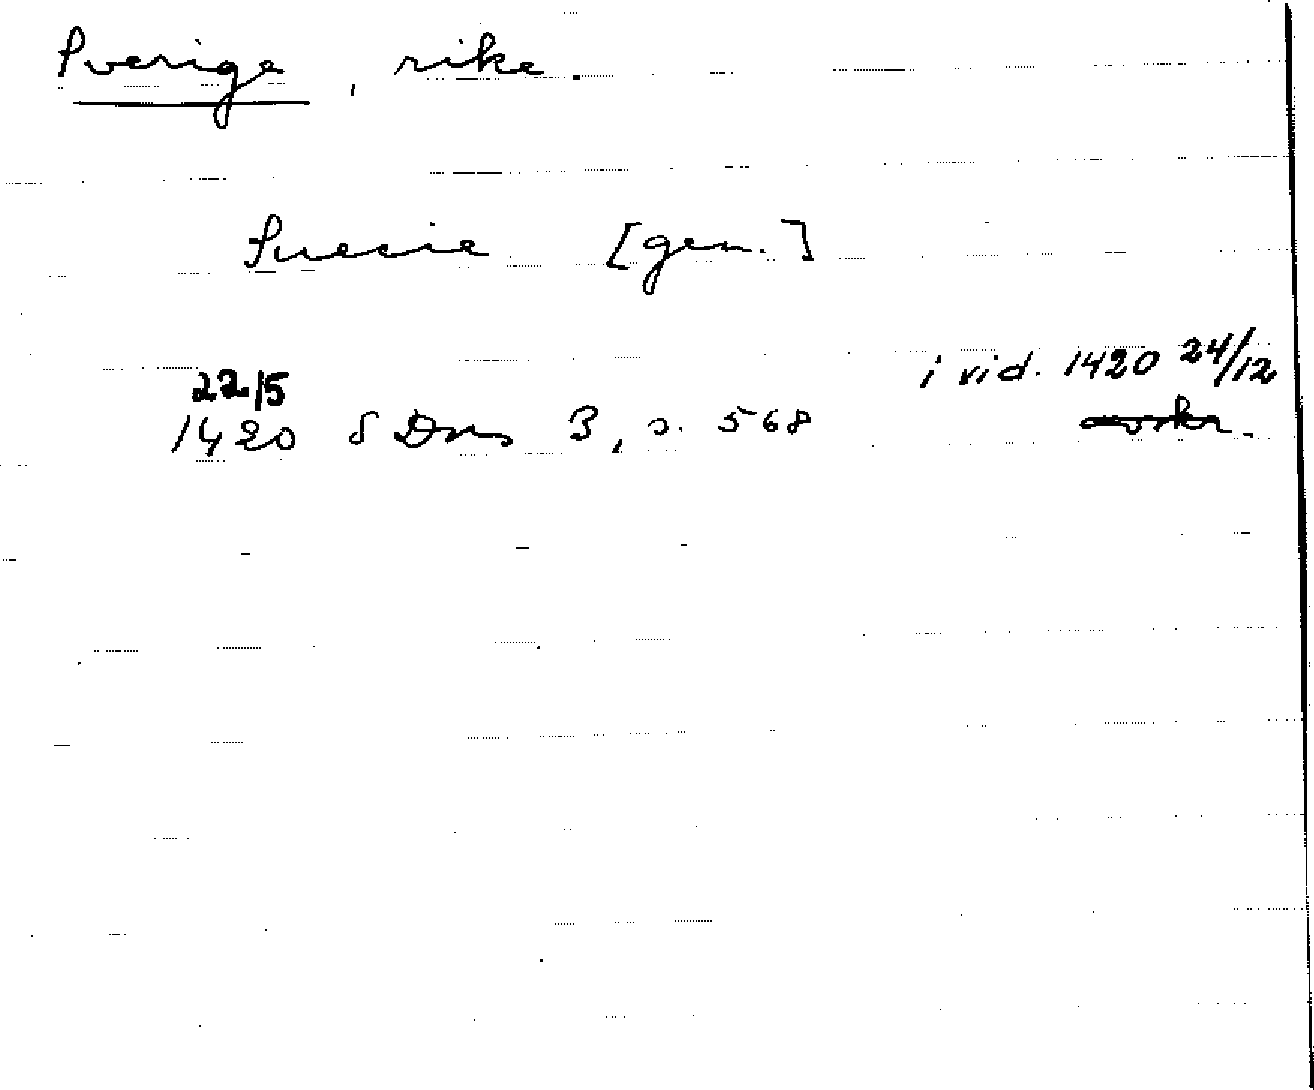 Sverige, rike.
Suecie [gen.]
22/5 i vid. 1420 24/12
1420 SDns 3, s. 568